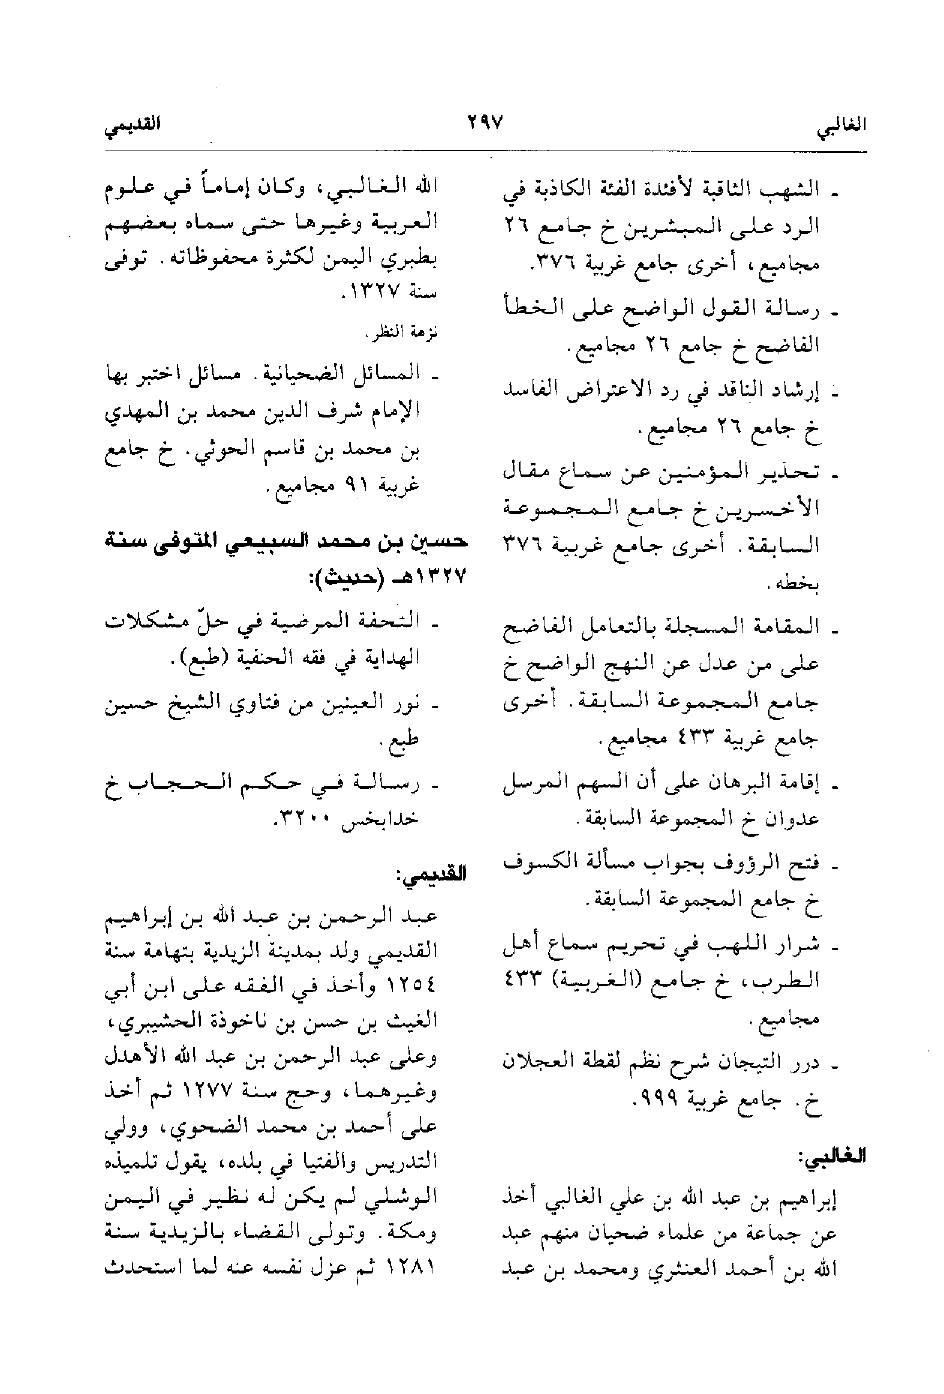 الغالبي ٢٩٧ القديمي
- الشهب الثاقبة لأفئدة الفئة الكاذبة في
الرد على المبشرين خ جامع ٢٦
مجاميع، أخرى جامع غربية ٣٧٦.
- رسالة القول الواضح على الخطأ
الفاضح خ جامع ٢٦ مجاميع.
- إرشاد الناقد في رد الاعتراض الفاسد
خ جامع ٢٦ مجاميع.
- تحذير المؤمنين عن سماع مقال
الأخسرين خ جامع المجموعة
السابقة. أخرى جامع غربية ٣٧٦
بخطه.
- المقامة المسجلة بالتعامل الفاضح
على من عدل عن النهج الواضح خ
جامع المجموعة السابقة. أخرى
جامع غربية ٤٣٣ مجاميع.
- إقامة البرهان على أن السهم المرسل
عدوان خ المجموعة السابقة.
- فتح الرؤوف بجواب مسألة الكسوف
خ جامع المجموعة السابقة.
- شرار اللهب في تحريم سماع أهل
الطرب، خ جامع (الغربية) ٤٣٣
مجاميع.
- درر التيجان شرح نظم لقطة العجلان
خ. جامع غربية ٩٩٩.
الغالبي:
إبراهيم بن عبد الله بن علي الغالبي أخذ
عن جماعة من علماء ضحيان منهم عبد
الله بن أحمد العنثري ومحمد بن عبد
الله الغالبي، وكان إماماً في علوم
العربية وغيرها حتى سماه بعضهم
بطبري اليمن لكثرة محفوظاته. توفى
سنة ١٣٢٧.
نزهة النظر.
- المسائل الضحيانية. مسائل اختبر بها
الإمام شرف الدين محمد بن المهدي
بن محمد بن قاسم الحوثي. خ جامع
غربية ٩١ مجاميع.
حسين بن محمد السبيعي المتوفى سنة
١٣٢٧هـ (حديث):
- التحفة المرضية في حلّ مشكلات
الهداية في فقه الحنفية (طبع).
- نور العينين من فتاوي الشيخ حسين
طبع.
- رسالة في حكم الحجاب خ
خدابخس ٣٢٠٠.
القديمي:
عبد الرحمن بن عبد الله بن إبراهيم
القديمي ولد بمدينة الزيدية بتهامة سنة
١٢٥٤ وأخذ في الفقه على ابن أبي
الغيث بن حسن بن ناخوذة الحشيبري،
وعلى عبد الرحمن بن عبد الله الأهدل
وغيرهما، وحج سنة ١٢٧٧ ثم أخذ
على أحمد بن محمد الضحوي، وولي
التدريس والفتيا في بلده، يقول تلميذه
الوشلي لم يكن له نظير في اليمن
ومكة. وتولى القضاء بالزيدية سنة
١٢٨١ ثم عزل نفسه عنه لما استحدث